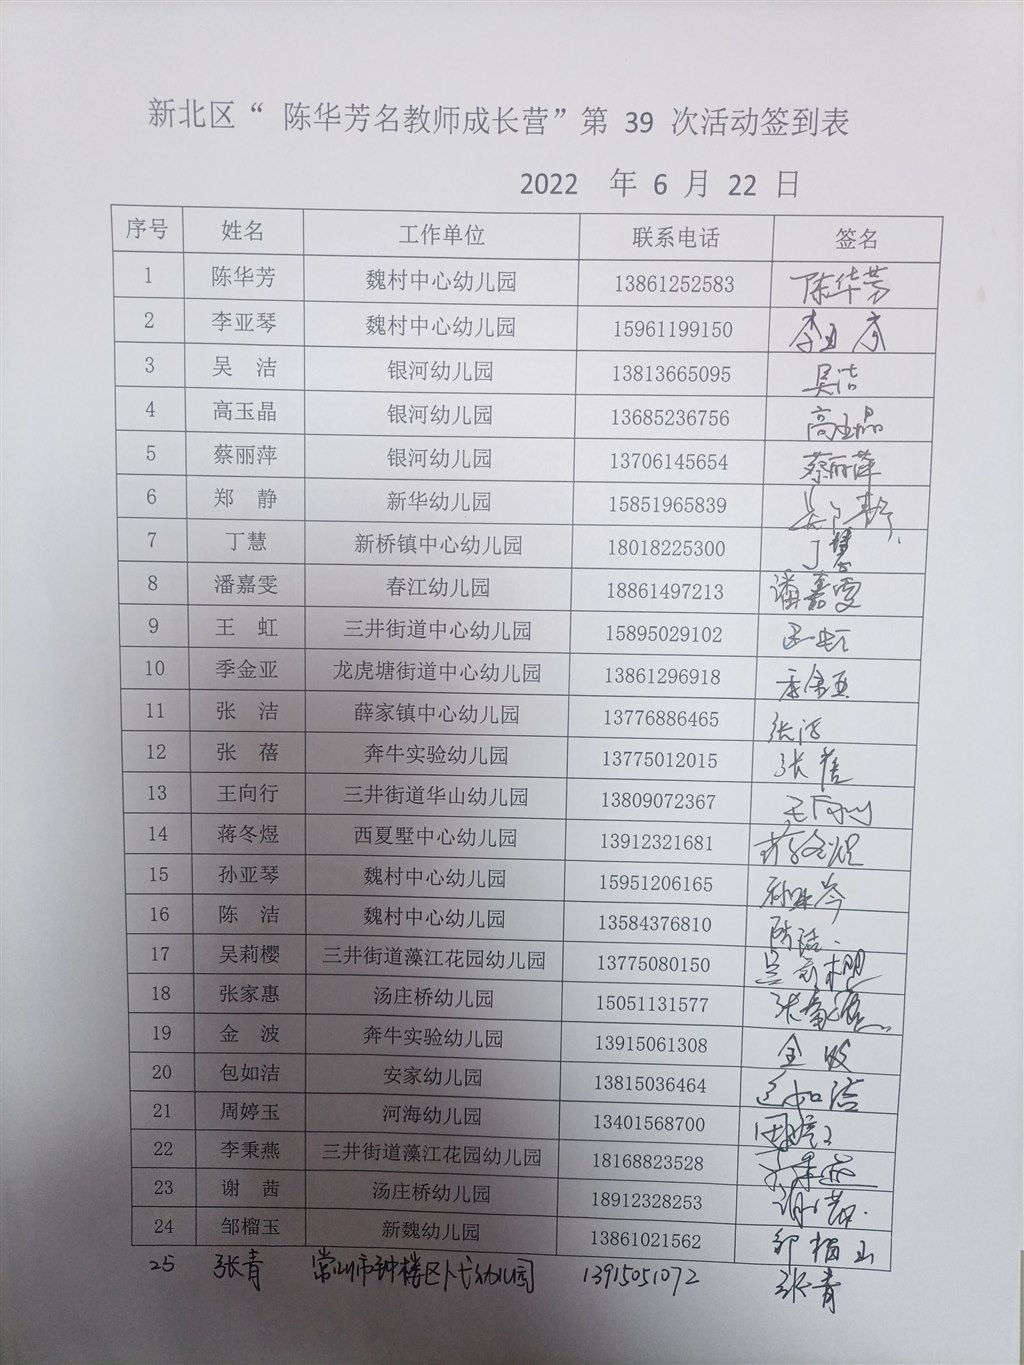 新北区“ 陈华芳名教师成长营”第 39 次活动签到表
2022 年 6 月 22 日
序号 姓名 工作单位 联系电话 签名
1 陈华芳 魏村中心幼儿园 13861252583 陈华芳
2 李亚琴 魏村中心幼儿园 15961199150 李亚琴
3 吴 洁 银河幼儿园 13813665095 吴洁
4 高玉晶 银河幼儿园 13685236756 高玉晶
5 蔡丽萍 银河幼儿园 13706145654 蔡丽萍
6 郑 静 新华幼儿园 15851965839 郑静
7 丁慧 新桥镇中心幼儿园 18018225300 丁慧
8 潘嘉雯 春江幼儿园 18861497213 潘嘉雯
9 王 虹 三井街道中心幼儿园 15895029102 王虹
10 季金亚 龙虎塘街道中心幼儿园 13861296918 季金亚
11 张 洁 薛家镇中心幼儿园 13776886465 张洁
12 张 蓓 奔牛实验幼儿园 13775012015 张蓓
13 王向行 三井街道华山幼儿园 13809072367 王向行
14 蒋冬煜 西夏墅中心幼儿园 13912321681 蒋冬煜
15 孙亚琴 魏村中心幼儿园 15951206165 孙亚琴
16 陈 洁 魏村中心幼儿园 13584376810 陈洁
17 吴莉樱 三井街道藻江花园幼儿园 13775080150 吴莉樱
18 张家惠 汤庄桥幼儿园 15051131577 张家惠
19 金 波 奔牛实验幼儿园 13915061308 金波
20 包如洁 安家幼儿园 13815036464 包如洁
21 周婷玉 河海幼儿园 13401568700 周婷玉
22 李秉燕 三井街道藻江花园幼儿园 18168823528 李秉燕
23 谢 茜 汤庄桥幼儿园 18912328253 谢茜
24 邹榴玉 新魏幼儿园 13861021562 邹榴玉
25 张青 常州市钟楼区卜弋幼儿园 13915051072 张青